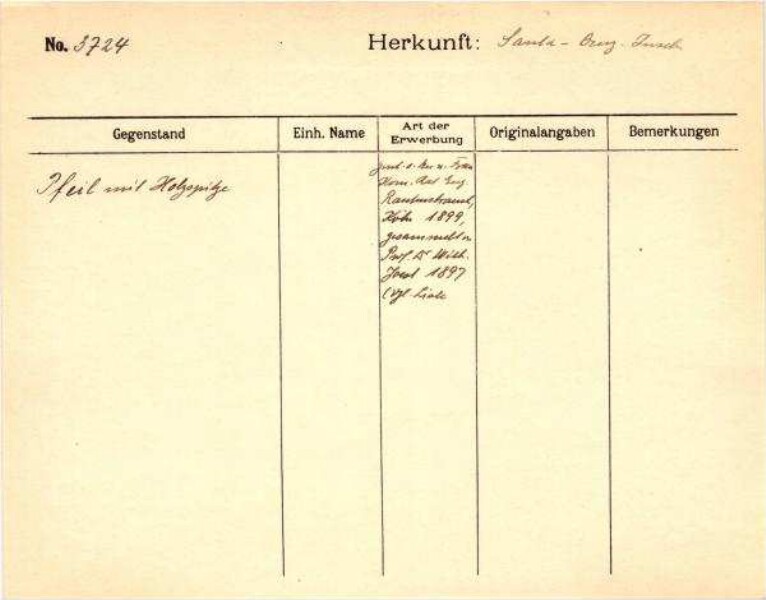 No. 3724
Herkunft: Santa-Cruz-Inseln
Gegenstand
Einh. Name
Art der Erwerbung
Originalangaben
Bemerkungen
Pfeil mit Holzspitze
Frau
Kom. Rat Eug.
Rautenstrauch,
Köln 1899,
gesammelt v.
Prof. Dr Wilh.
Joest 1897
(vgl. Liste